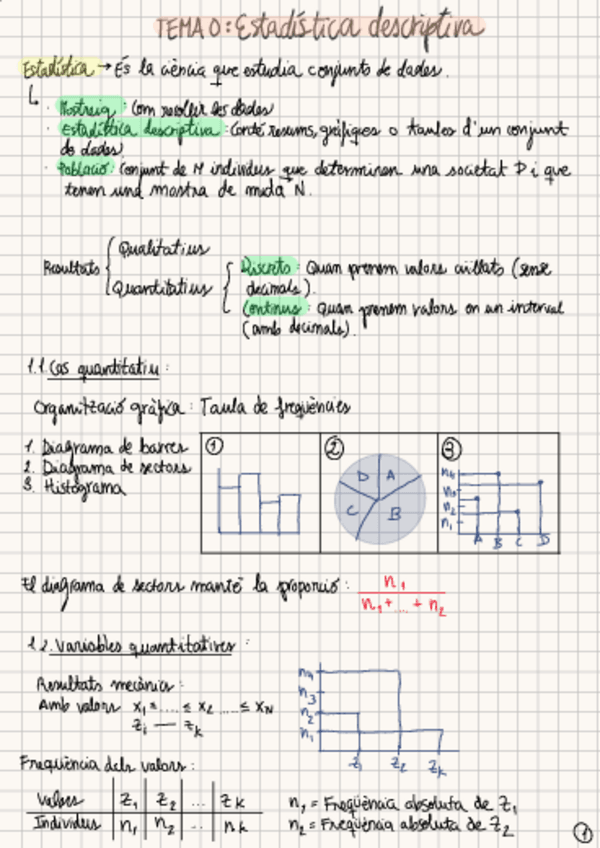 TEMA 0: Estadística descriptiva
Estadística → És la ciència que estudia conjunto de dades.
· Mostreig: Com recollir les dades
· Estadística descriptiva: Conté resums, gràfiques o taules d'un conjunt
de dades
· Població: Conjunt de M individus que determinen una societat D i que
tenen una mostra de mida N.
Resultats
Qualitatius
Quantitatius
Discrets: Quan prenem valors aïllats (sense
decimals).
Continus: quan prenem valors en un interval
(amb decimals).
1.1. Cas quantitatiu:
Organització gràfica: Taula de freqüències
1. Diagrama de barres
2. Diagrama de sectors
3. Histograma
① ② ③
D A
C B
n4
n3
n2
n1
A B C D
El diagrama de sectors manté la proporció: n1 / n1 + ... + n2
1.2. Variables quantitatives:
Resultats mecànics:
Amb valors x1 = .... ≤ x2 .... ≤ xN
z1 — zk
n4
n3
n2
n1
z1 z2 zk
Freqüència dels valors:
Valors z1 z2 ... zk
Individus n1 n2 .. nk
n1 = Freqüència absoluta de z1
n2 = Freqüència absoluta de z2
1